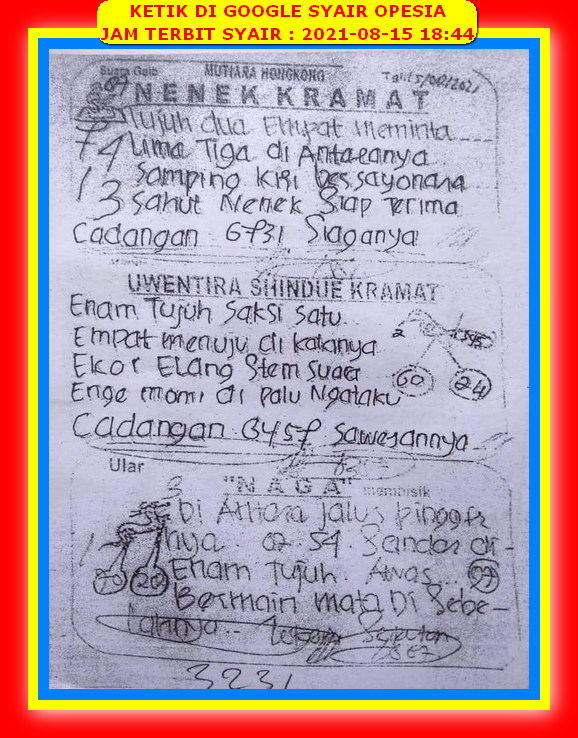 KETIK DI GOOGLE SYAIR OPESIA
JAM TERBIT SYAIR : 2021-08-15 18:44
Suara Gaib MUTIARA HONGKONG
NENEK KRAMAT
Tujuh dua Empat meminta
74 Lima Tiga di Antaranya
13 Samping Kiri bersayonara
Sahut Nenek Siap Terima
Cadangan 6731 Siaganya
UWENTIRA SHINDUE KRAMAT
Enam Tujuh Saksi Satu
Empat menuju di katanya
2
Ekor Elang Stem Suara
60 24
Enge momi di palu Ngataku
Cadangan
Ular
"NAGA" membisik
Di Antara Jalus
nya 02 54 Sandar di-
20 Enam Tujuh. Awas...
Bermain mata Di Sebe-
lahnya..
3231